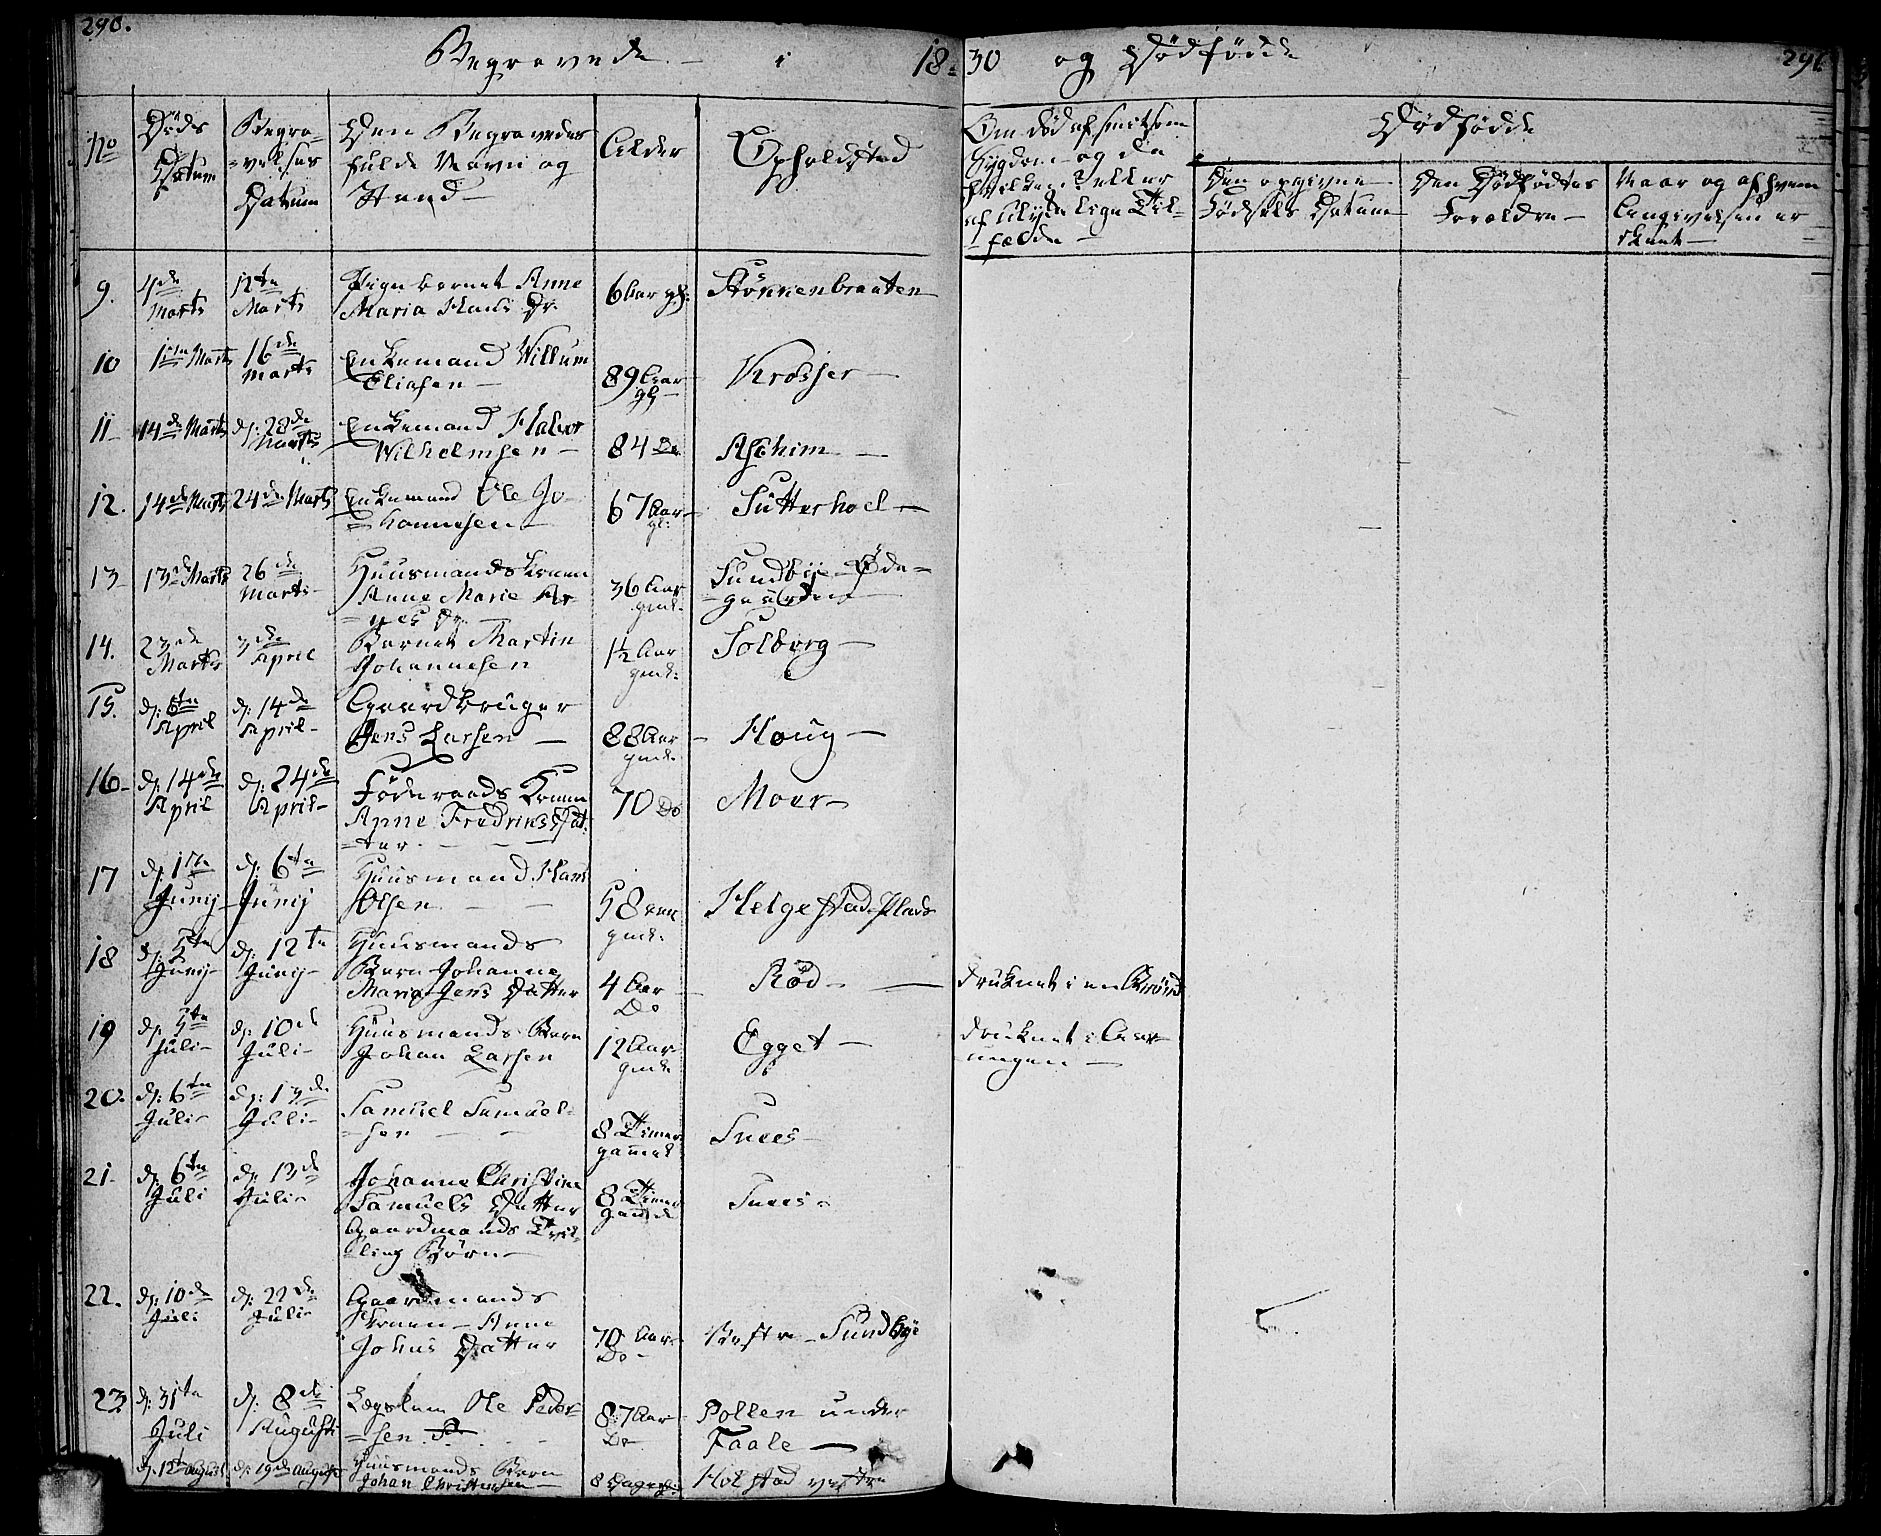 290.
Begravede i 1830 og Dødfødte
No
Døds Datum
Begravelses Datum
Den Begravedes fulde Navn og Stand
Alder
Opholdsted
Dødfødte
Den opgivne Fødsels Datum
Den Dødfødtes Forældre
Naar og af hvem Angivelsen er skeet
9. 4de Marts 12te Marts Pigebarnet Anne Maria Hans Dr. 6 Aar gl: Stökkenbraaten
10 Marts 16de Marts Enkemand Willum Eliasen 89 Aar gl Krosser
11 14de Marts d: 28de Marts Enkemand Halvor Wilhelmsen 84 Do Aschim
12. 14de Marts 24de Marts Enkemand Ole Johannesen 67 Aar gl: Sutterhoel
13 13de Marts 26de Marts Huusmandskonen Anne Marie 36 Aar gml: Sundbye Ødegaarden
14. 23de Marts 3de April Barnet Martin Johannesen 1½ Aar gml: Solberg
15. d: 6te April d: 14de April Gaardbruger Jens Larsen 88 Aar gml: Houg
16 d: 14de April d: 24de April Føderaads Konen Anne Fredriksdatter 70 Do Moer
17 d: 1ste Junij d: 6te Junij Huusmand Hans Olsen 58 Aar gml: Helgestad Plads
18 d: 5te Junij d: 12te Junij Huusmands Barn Johanne Maria Jens Datter 4 Aar Do Röd druknet i en Brönd
19 d: 5te Juli d: 10de Juli Huusmands Barn Johan Larsen 12 Aar gml: Egget druknet i Aarungen
20. d: 6te Juli d: 13de Juli Samuel Samuelsen 8 Timer gammel Snees
21. d: 6te Juli d: 13de Juli Johanne Christine Samuels Datter Gaardmands Tvilling Børn 8 Timer gammel Snees
22. d: 10de Juli d: 22de Juli Gaardmands Konen Anne Johns Datter 70 Aar Do Vestre Sundbye
23 d: 31te Juli d: 8de Augusti Lægslem Ole Pedersen 87 Aar Do Pollen under Faale
d: 12te August d: 19de August Huusmands Barn Johan Christensen 8 Dage gl: Holstad vestre